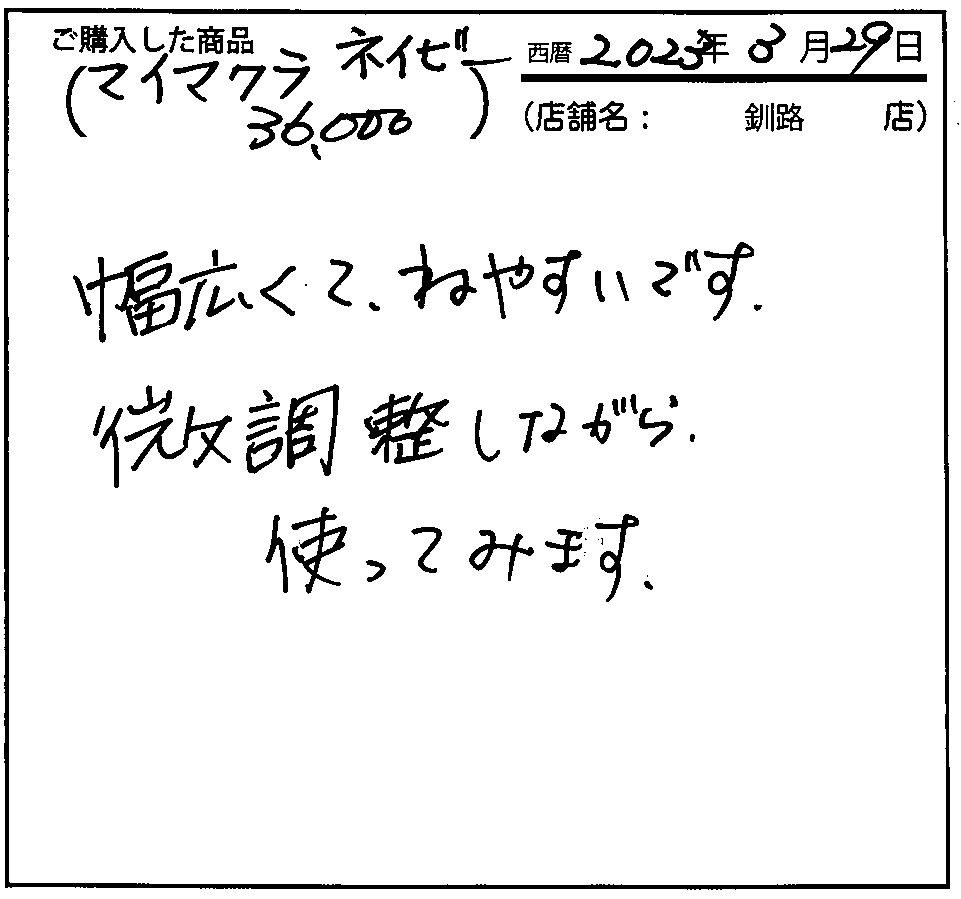 ご購入した商品
(マイマクラ ネイビー
36,000)
西暦 2023年 3月29日
(店舗名: 釧路 店)
幅広くて、ねやすいです.
微調整しながら.
使ってみます.